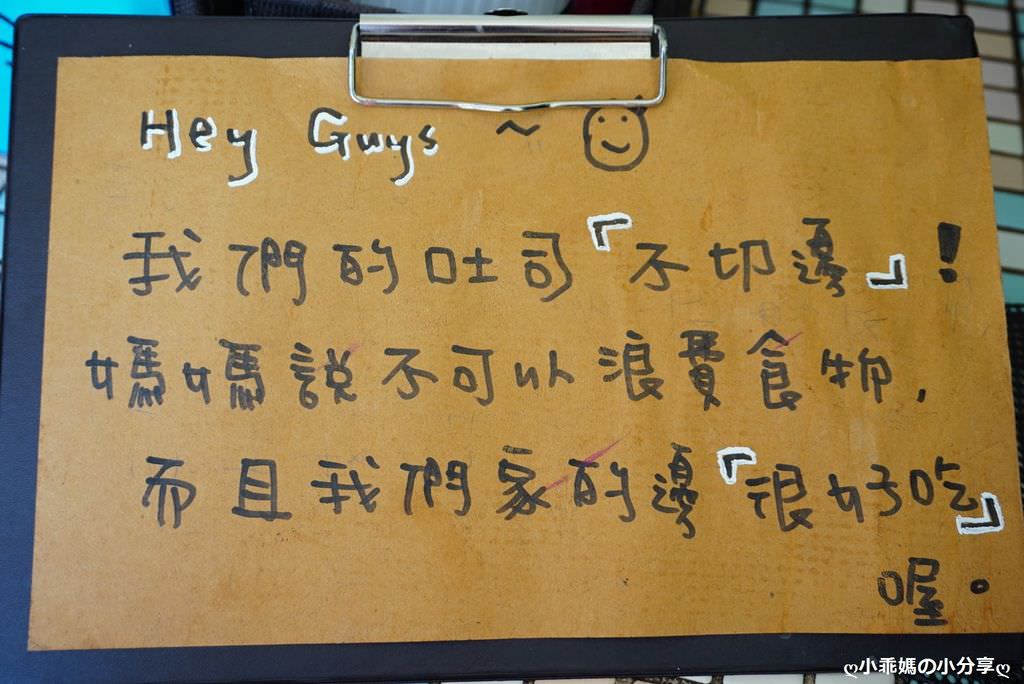 Hey Guys ~
我們的吐司『不切邊』!
媽媽說不可以浪費食物,
而且我們家的邊『很好吃』
喔。
ღ小乖媽の小分享ღ